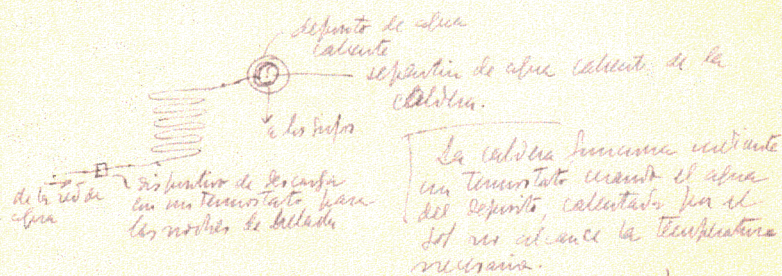 deposito de agua
caliente
serpentin de agua caliente de la
caldera.
a los grifos
de la red de
agua
dispositivo de descarga
con un termostato para
las noches de helada
La caldera funciona mediante
un termostato cuando el agua
del deposito, calentada por el
sol no alcance la temperatura
necesaria.